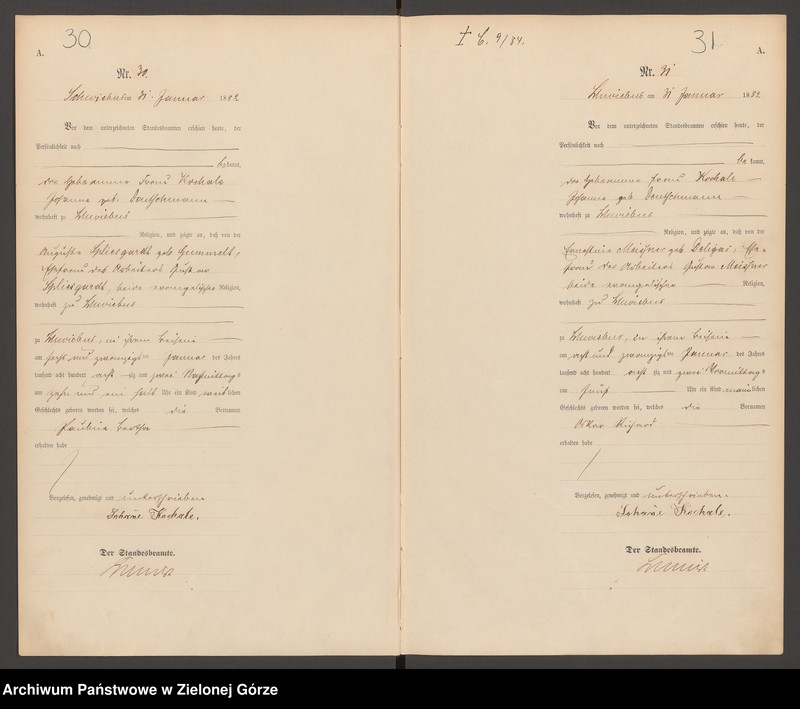 30
A.
Nr. 30.
Schwiebus am 31. Januar 1882
Vor dem unterzeichneten Standesbeamten erschien heute, der
Persönlichkeit nach
bekannt,
die Hebamme Frau Kochale
Johanne geb. Deutschmann
wohnhaft zu Schwiebus
Religion, und zeigte an, daß von der
Auguste Spliesgardt geb. Gummelt,
Ehefrau des Arbeiters Gustav
Spliesgardt, beide evangelischer Religion,
wohnhaft zu Schwiebus
zu Schwiebus, in ihrem Beisein
am sechs und zwanzigsten Januar des Jahres
tausend acht hundert acht zig und zwei Nachmittags
um zehn und ein halb Uhr ein Kind weiblichen
Geschlechts geboren worden sei, welches die Vornamen
Pauline Bertha
erhalten habe
Vorgelesen, genehmigt und unterschrieben
Johane Kochale.
Der Standesbeamte.
† C. 9/84.
31
A.
Nr. 31
Schwiebus am 31 Januar 1882
Vor dem unterzeichneten Standesbeamten erschien heute, der
Persönlichkeit nach
bekannt,
die Hebamme Frau Kochale
Johanne geb Deutschmann
wohnhaft zu Schwiebus
Religion, und zeigte an, daß von der
Ernestine Meißner geb. Ehe-
frau des Arbeiters Gustav Meißner
beide evangelischer Religion,
wohnhaft zu Schwiebus
zu Schwiebus, in ihrem Beisein
am acht und zwanzigsten Januar des Jahres
tausend acht hundert acht zig und zwei Vormittags
um fünf Uhr ein Kind männlichen
Geschlechts geboren worden sei, welches die Vornamen
Oskar Richard
erhalten habe
Vorgelesen, genehmigt und unterschrieben.
Johane Kochale.
Der Standesbeamte.
Archiwum Państwowe w Zielonej Górze